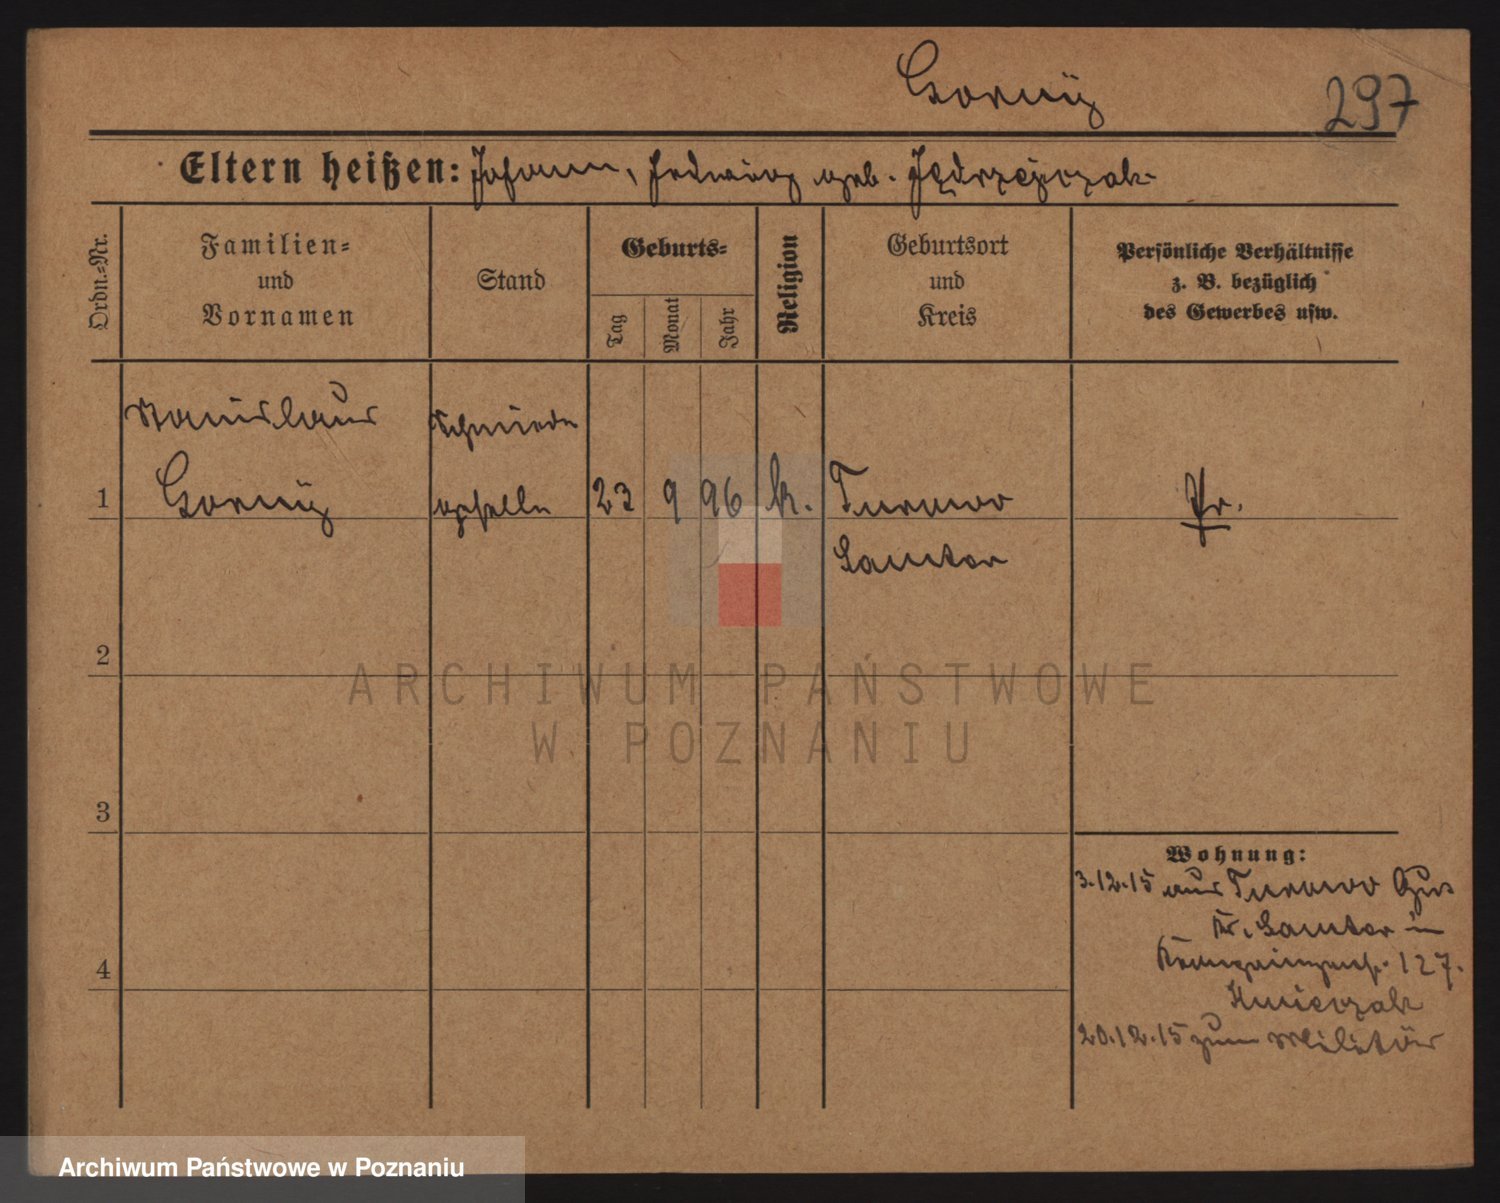 Gorny
297
Eltern heißen: Johann, Hedwig geb. Jędrzejczak
Ordn.=Nr.
Familien=
und
Vornamen
Stand
Geburts=
Tag
Monat
Jahr
Religion
Geburtsort
und
Kreis
Persönliche Verhältnisse
z. B. bezüglich
des Gewerbes usw.
Stanislaus
Schmiede
1 Gorny geselle 23 9 96 k. Turowo Pr.
Samter
2
3
4
Wohnung:
3.12.15 aus Turowo Gut
Kr. Samter in
127.
20.12.15 zum Militär
ARCHIWUM PAŃSTWOWE
W POZNANIU
Archiwum Państwowe w Poznaniu